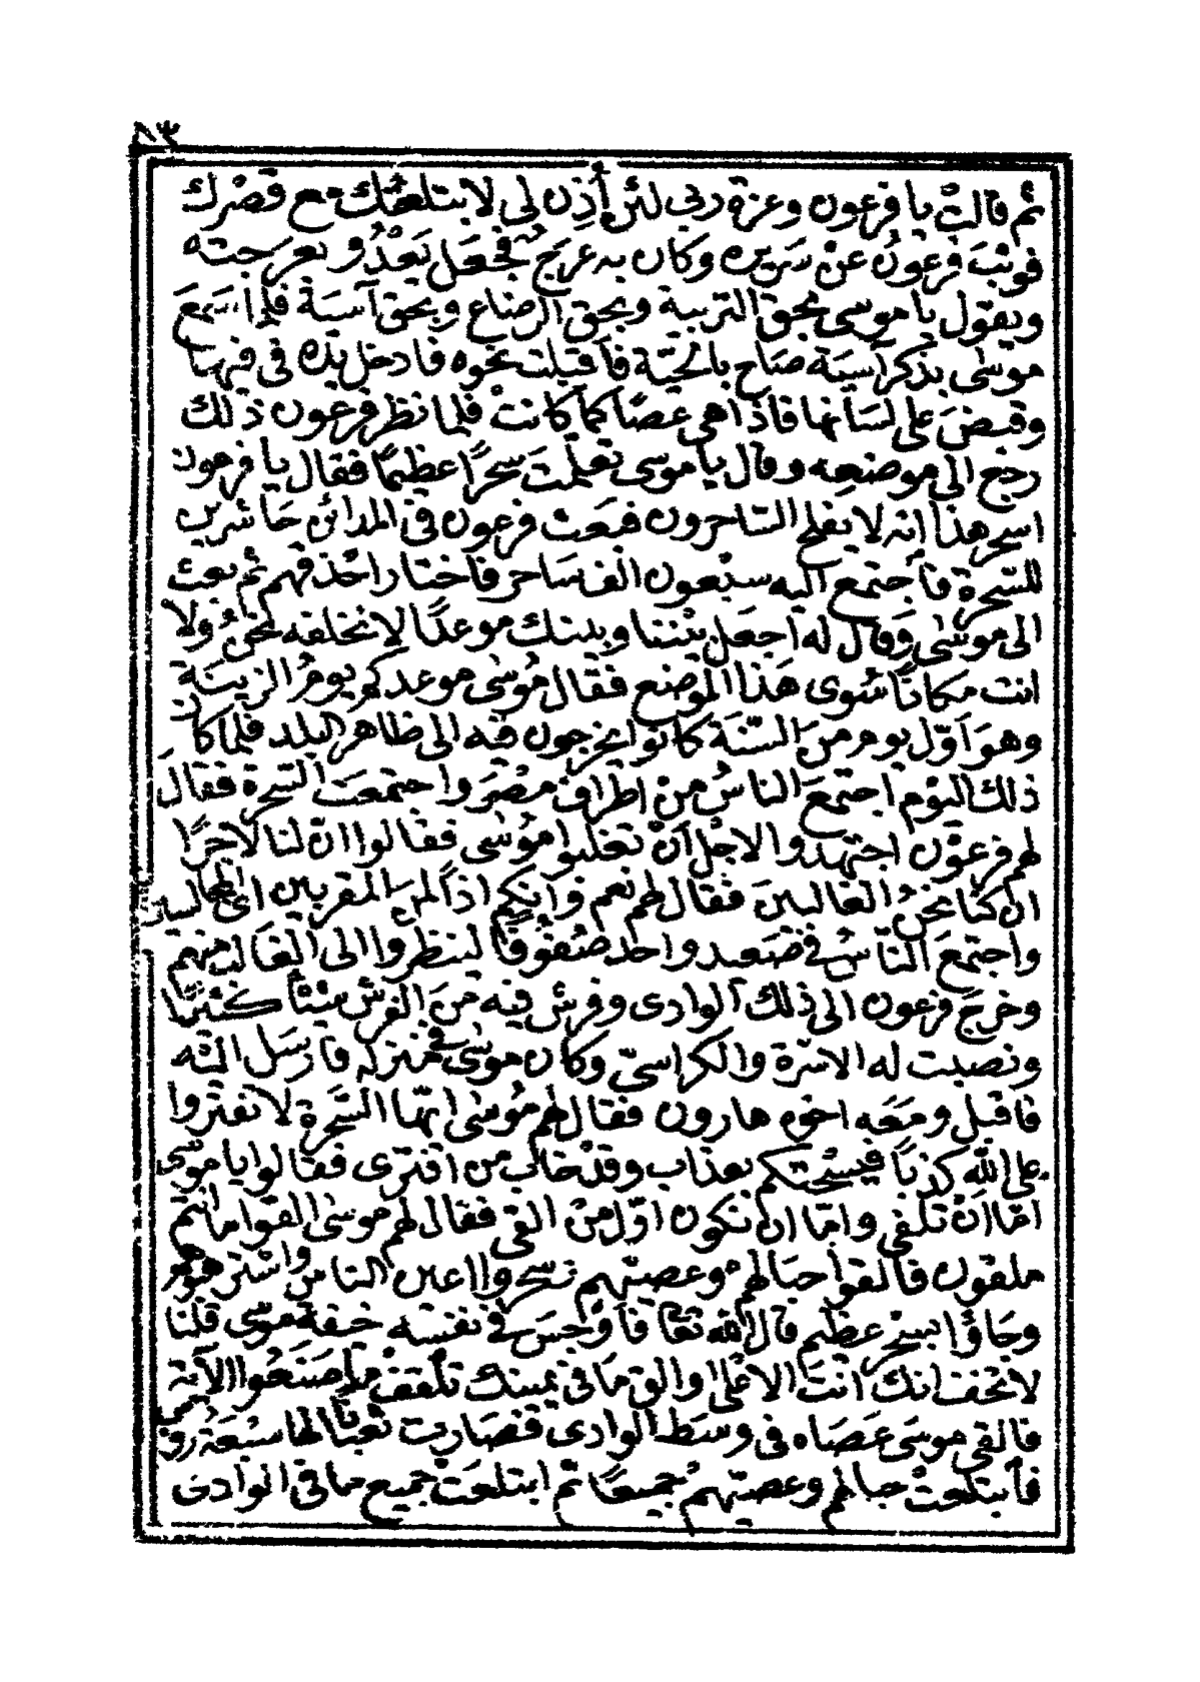 ٨٣
ثم قالت يا فرعون وعزة ربى لئن أذن لى لابتلعتك مع قصرك
فوثب فرعون عن سريره وكان به عرج فجعل يعدو بعرجته
ويقول يا موسى بحق التربية وبحق الرضاع وبحق آسية فلما سمع
موسى بذكر آسية صاح بالحية فأقبلت نحوه فادخل يده فى فيها
وقبض على لسانها فاذا هى عصا كما كانت فلما نظر فرعون ذلك
رجع الى موضعه وقال يا موسى تعلمت سحرا عظيما فقال يا فرعون
اسحر هذا انه لا يفلح الساحرون فبعث فرعون فى المدائن حاشرين
للسحرة فأجتمع اليه سبعون الف ساحر فاختار احذقهم ثم بعث
الى موسى وقال له اجعل بيننا وبينك موعدا لا نخلفه نحن ولا
انت مكانا سوى هذا الموضع فقال موسى موعدكم يوم الزينة
وهو أول يوم من السنة كانوا يخرجون فيه الى ظاهر البلد فلما كان
ذلك اليوم اجتمع الناس من اطراف مصر واجتمعت السحرة فقال
لهم فرعون اجتهدوا لاجل أن تغلبوا موسى فقالوا ان لنا لاجرا
ان كنا نحن الغالبين فقال لهم نعم وانكم اذا لمن المقربين
واجتمع الناس فى صعيد واحد صفوفا لينظروا الى الغالب منهم
وخرج فرعون الى ذلك الوادى وفرش فيه من الفرش شئا كثيرا
ونصبت له الاسرة والكراسى وكان موسى فى منزله فأرسل اليه
فاقبل ومعه اخوه هارون فقال لهم موسى ايها السحرة لا تفتروا
على الله كذبا فيسحتكم بعذاب وقد خاب من افترى فقالوا يا موسى
امّا أن تلقى وامّا ان نكون اول من القى فقال لهم موسى القوا ما انتم
ملقون فألقوا حبالهم وعصيهم سحروا اعين الناس واسترهبوهم
وجاؤا بسحر عظيم قال الله تعا فأوجس فى نفسه خيفة موسى قلنا
لا تخف انك انت الاعلى والق ما فى يمينك تلقف ما صنعوا الآية
فالقى موسى عصاه فى وسط الوادى فصارت ثعبانا لها سبعة روس
فأبتلعت حبالهم وعصيهم جميعا ثم ابتلعت جميع ما فى الوادى